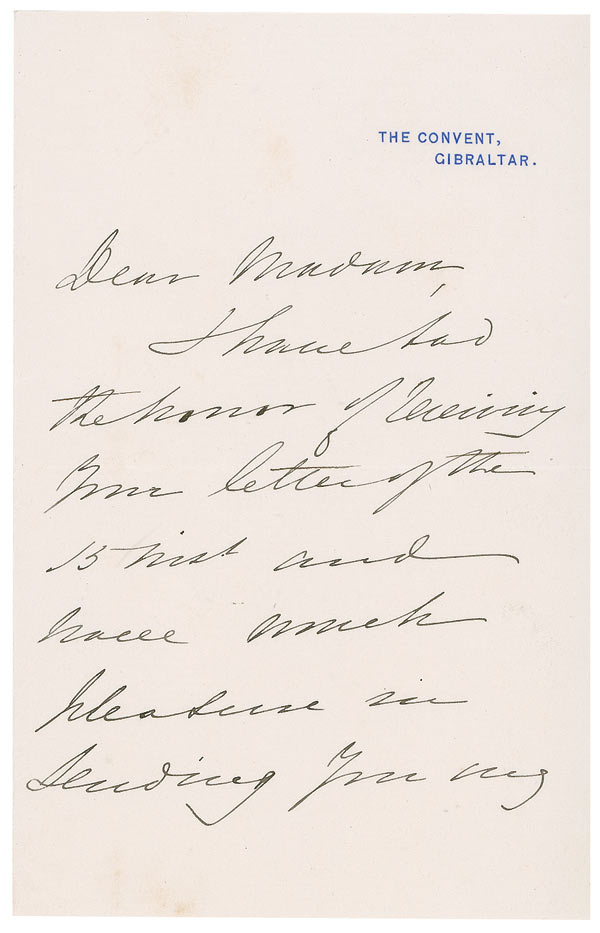 THE CONVENT,
GIBRALTAR.
Dear Madam,
I have had
the honor of receiving
your letter of the
15 inst and
have much
pleasure in
sending you my